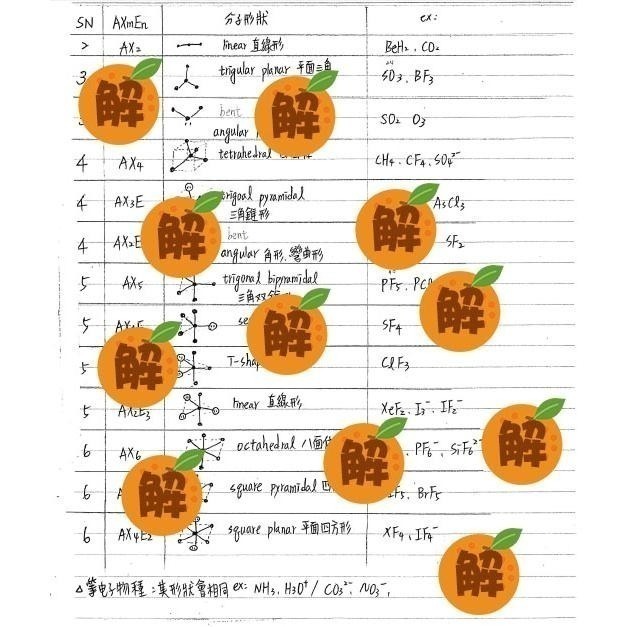 SN AXmEn 分子形狀 ex:
AX2 linear 直線形 BeH2、CO2
3 trigular planar 平面三角 SO3、BF3
bent
angular SO2 O3
4 AX4 tetrahedral CH4、CF4、SO4²⁻
4 AX3E trigoal pyramidal AsCl3
三角錐形
4 AX2E bent SF2
angular 角形、彎曲形
5 AX5 trigonal bipyramidal PF5、PCl
三角双
5 SF4
5 T-shap ClF3
5 AX2E3 linear 直線形 XeF2、I3⁻、IF2⁻
6 AX6 octahedral 八面体 PF6⁻、SiF6²⁻
6 square pyramidal 四 IF5、BrF5
6 AX4E2 square planar 平面四方形 XF4、IF4⁻
△等电子物種:其形狀會相同 ex: NH3、H3O⁺ / CO3²⁻、NO3⁻、
解
解
解
解
解
解
解
解
解
解
解